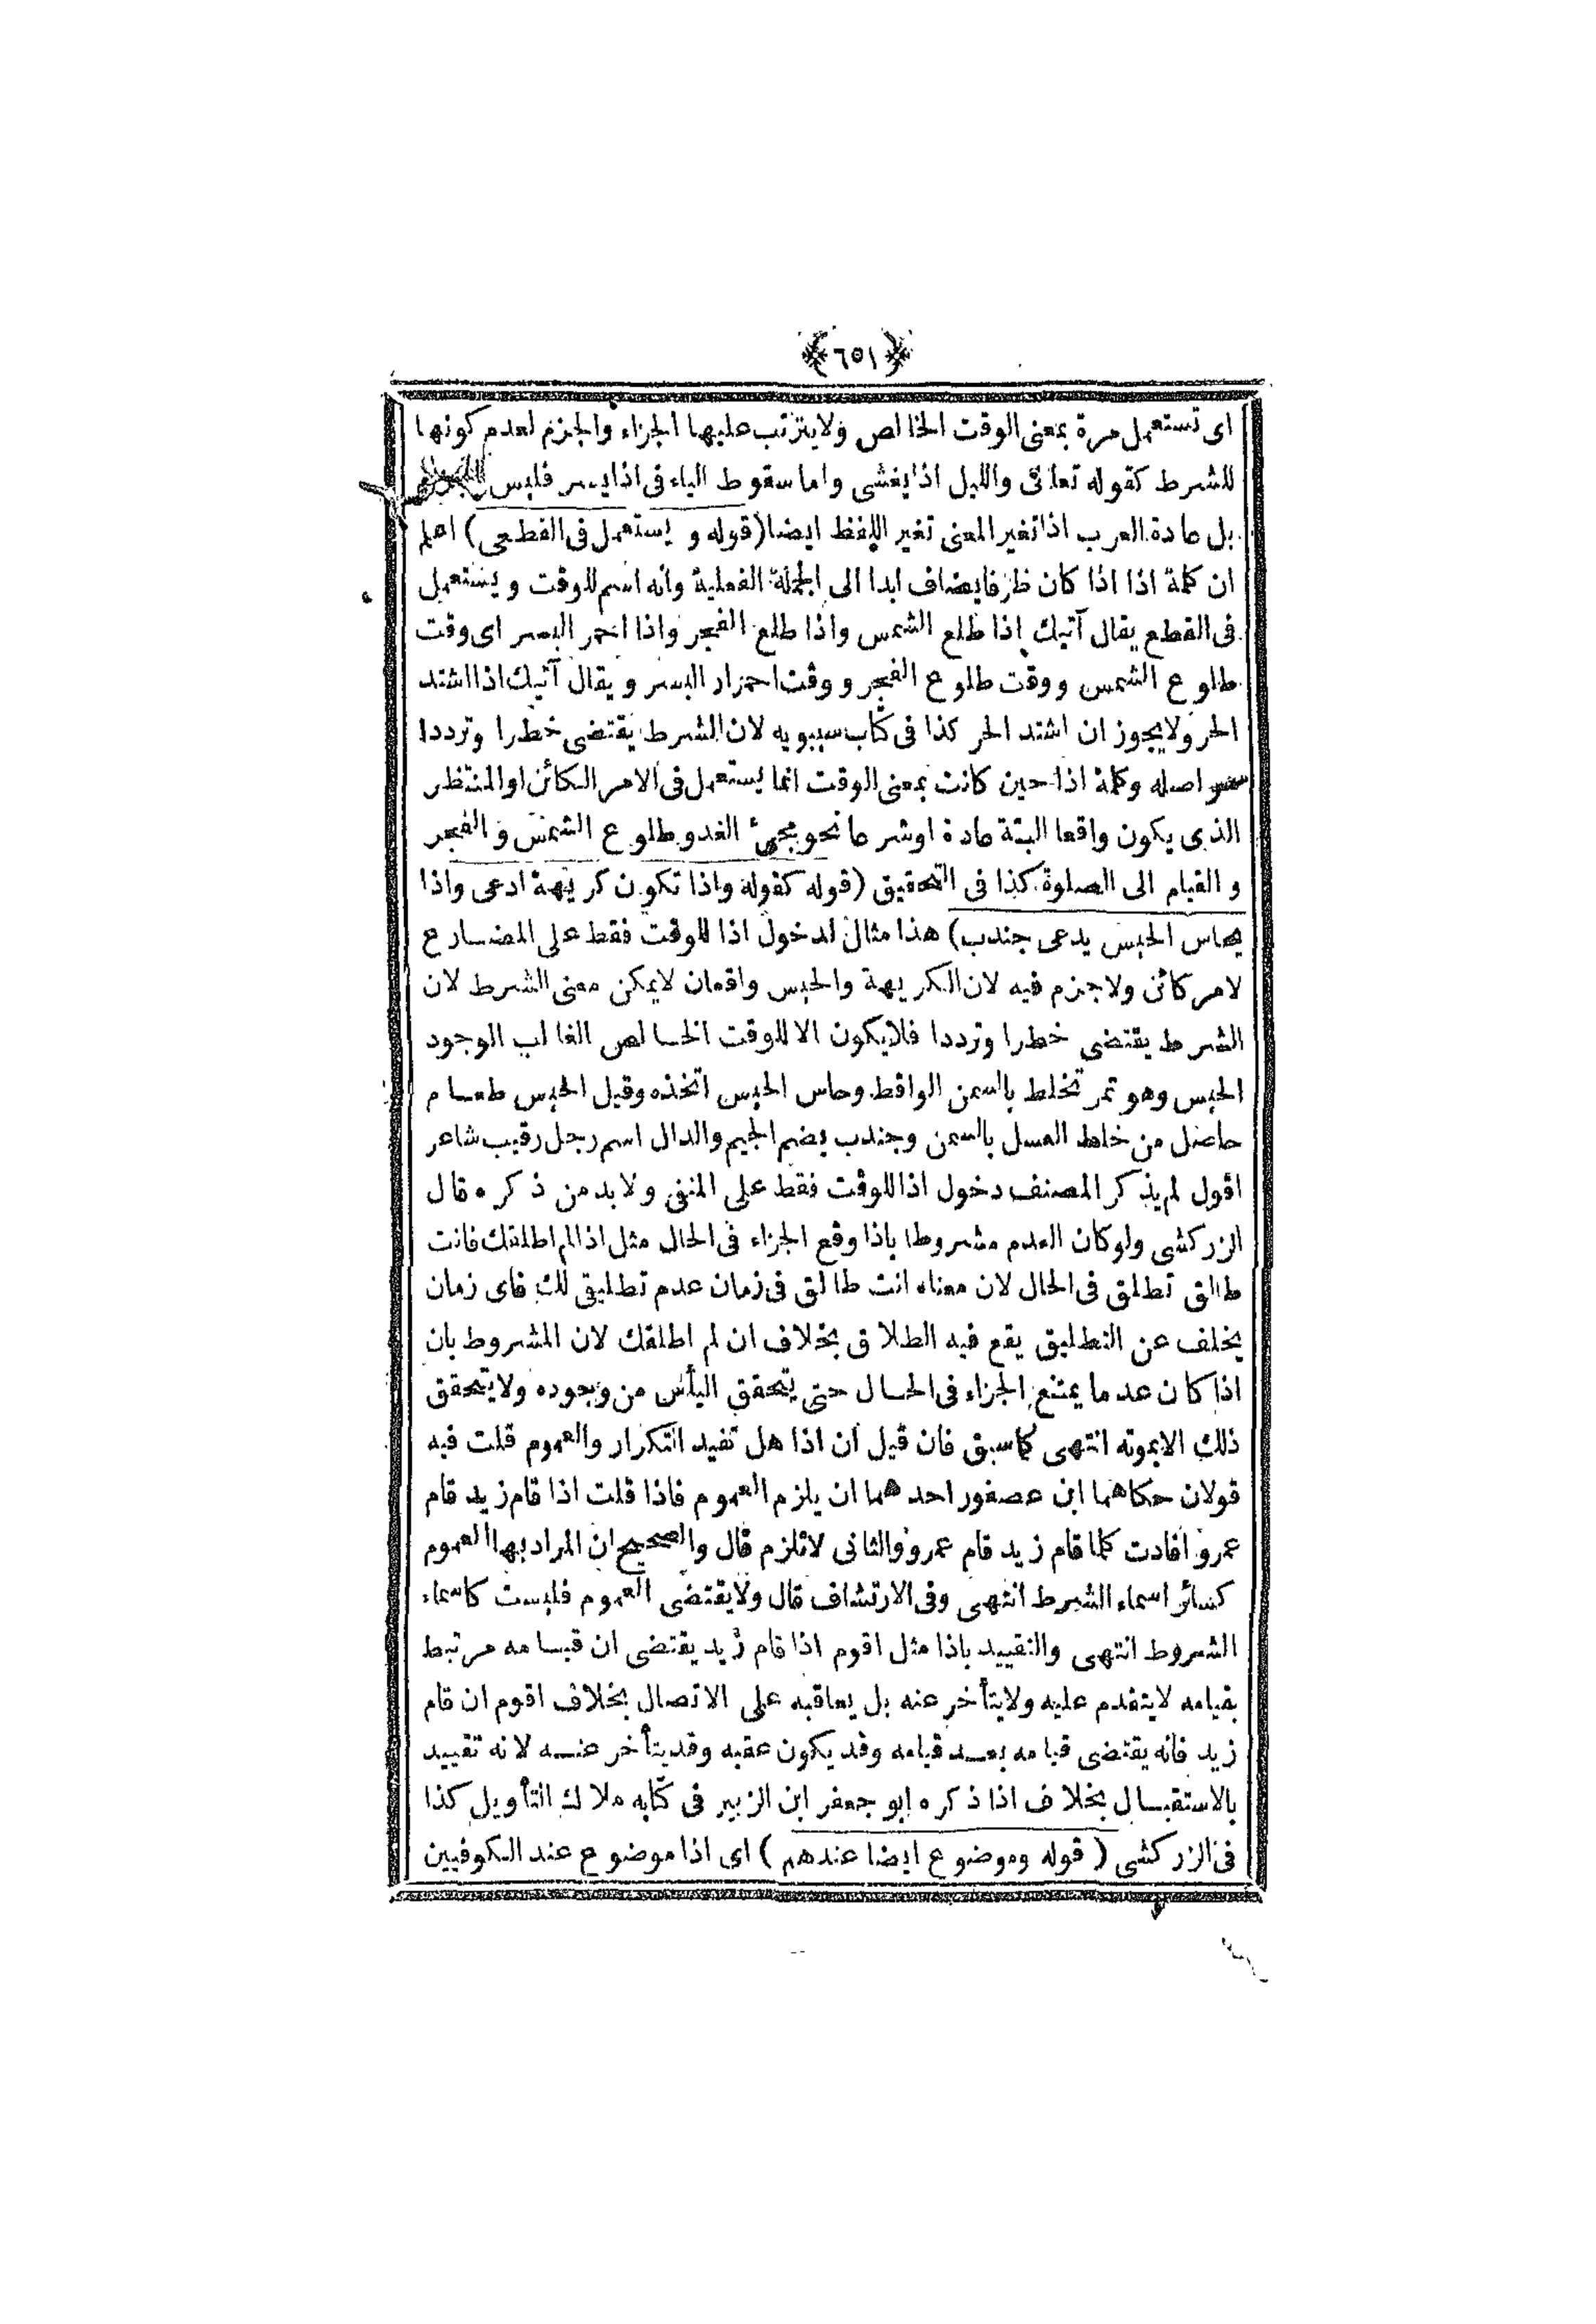 ﴿٦٥١﴾
اى تستعمل مرة بمعنى الوقت الخالص ولايترتب عليها الجزاء والجزم لعدم كونها
للشرط كقوله تعالى والليل اذا يغشى واما سقوط الياء فى اذا يسر فليس
بل عادة العرب اذا تغير المعنى تغير اللفظ ايضا (قوله و يستعمل فى القطعى) اعلم
ان كلمة اذا اذا كان ظرفا يضاف ابدا الى الجملة الفعلية وانه اسم للوقت ويستعمل
فى القطع يقال آتيك اذا طلع الشمس واذا طلع الفجر واذا احمر البسر اى وقت
طلوع الشمس ووقت طلوع الفجر ووقت احمرار البسر و يقال آتيك اذا اشتد
الحر ولايجوز ان اشتد الحر كذا فى كتاب سيبويه لان الشرط يقتضى خطرا وترددا
اصله وكلمة اذا حين كانت بمعنى الوقت انما يستعمل فى الامر الكائن او المنتظر
الذى يكون واقعا البتة عادة اوشرعا نحو مجئ الغد و طلوع الشمس و الفجر
و القيام الى الصلوة كذا فى التحقيق (قوله كقوله واذا تكون كريهة ادعى واذا
يحاس الحيس يدعى جندب) هذا مثال لدخول اذا للوقت فقط على المضارع
لامر كائن ولاجزم فيه لان الكريهة والحيس واقعان لايمكن معنى الشرط لان
الشرط يقتضى خطرا وترددا فلايكون الا للوقت الخالص الغالب الوجود
الحيس وهو تمر تخلط بالسمن الواقط وحاس الحيس اتخذه وقيل الحيس طعام
حاصل من خلط العسل بالسمن وجندب بضم الجيم والدال اسم رجل رقيب شاعر
اقول لم يذكر المصنف دخول اذا للوقت فقط على المنفى ولابد من ذكره قال
الزركشى ولوكان العدم مشروطا باذا وقع الجزاء فى الحال مثل اذا لم اطلقك فانت
طالق تطلق فى الحال لان معناه انت طالق فى زمان عدم تطليقى لك فاى زمان
يخلف عن التطليق يقع فيه الطلاق بخلاف ان لم اطلقك لان المشروط بان
اذا كان عدما يمتنع الجزاء فى الحال حتى يتحقق اليأس من وجوده ولايتحقق
ذلك الابموته انتهى كاسبق فان قيل ان اذا هل تفيد التكرار والعموم قلت فيه
قولان حكاهما ابن عصفور احدهما ان يلزم العموم فاذا قلت اذا قام زيد قام
عمرو افادت كلما قام زيد قام عمرو والثانى لاتلزم قال والصحيح ان المراد بها العموم
كسائر اسماء الشرط انتهى وفى الارتشاف قال ولايقتضى العموم فليست كاسماء
الشروط انتهى والتقييد باذا مثل اقوم اذا قام زيد يقتضى ان قيامه مرتبط
بقيامه لايتقدم عليه ولايتأخر عنه بل يعاقبه على الاتصال بخلاف اقوم ان قام
زيد فانه يقتضى قيامه بعد قيامه وقد يكون عقبه وقد يتأخر عنه لانه تقييد
بالاستقبال بخلاف اذا ذكره ابو جعفر ابن الزبير فى كتابه ملاك التأويل كذا
فى الزركشى (قوله وموضوع ايضا عندهم) اى اذا موضوع عند الكوفيين